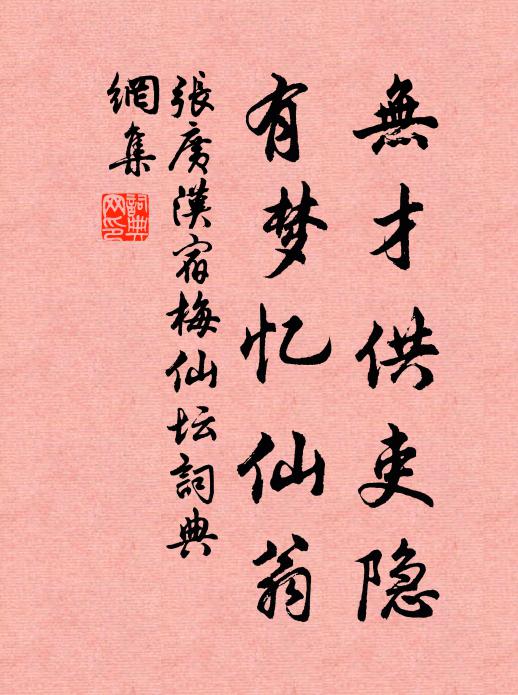 無才供吏隐
有梦忆仙翁
張廣漢宿梅仙坛詞典
網集
詞典
网印